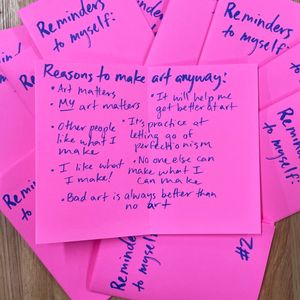 Reminders
to myself:
Reminders
to myself:
Reasons to make art anyway:
• Art matters
• MY art matters
• Other people
like what I
make
• I like what
I make!
• It will help me
get better at art
• It's practice at
letting go of
perfectionism
• No one else can
make what I
can make
• Bad art is always better than
no art
Reminders
to myself:
Reminders
to myself:
Reminders
to myself:
#2